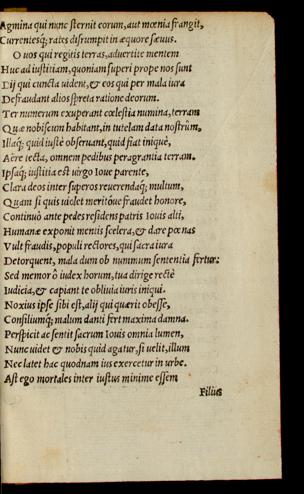 Agmina qui nunc sternit eorum, aut mœnia frangit,
Currentesq́; rates disrumpit in æquore sæuus.
O uos qui regitis terras, aduertite mentem
Huc ad iustitiam, quoniam superi prope nos sunt
Dij qui cuncta uident, & eos qui per mala iura
Defraudant alios spreta ratione deorum.
Ter numerum exuperant cœlestia numina, terram
Quæ nobiscum habitant, in tutelam data nostrûm,
Illaq́; quid iuste obseruant, quid fiat iniquè,
Aëre tecta, omnem pedibus peragrantia terram.
Ipsaq́; iustitia est uirgo Ioue parente,
Clara deos inter superos reuerendaq́; multum,
Quam si quis uiolet meritóue fraudet honore,
Continuò ante pedes residens patris Iouis alti,
Humanæ exponit mentis scelera, & dare pœnas
Vult fraudis, populi rectores, qui sacra iura
Detorquent, mala dum ob nummum sententia fertur.
Sed memor ô iudex horum, tua dirige rectè
Iudicia, & capiant te obliuia iuris iniqui.
Noxius ipse sibi est, alij qui quærit obesse,
Consiliumq́; malum danti fert maxima damna.
Perspicit ac sentit sacrum Iouis omnia lumen,
Nunc uidet & nobis quid agatur, si uelit, illum
Nec latet hac quodnam ius exercetur in urbe.
Ast ego mortales inter iustus minime essem
Filius